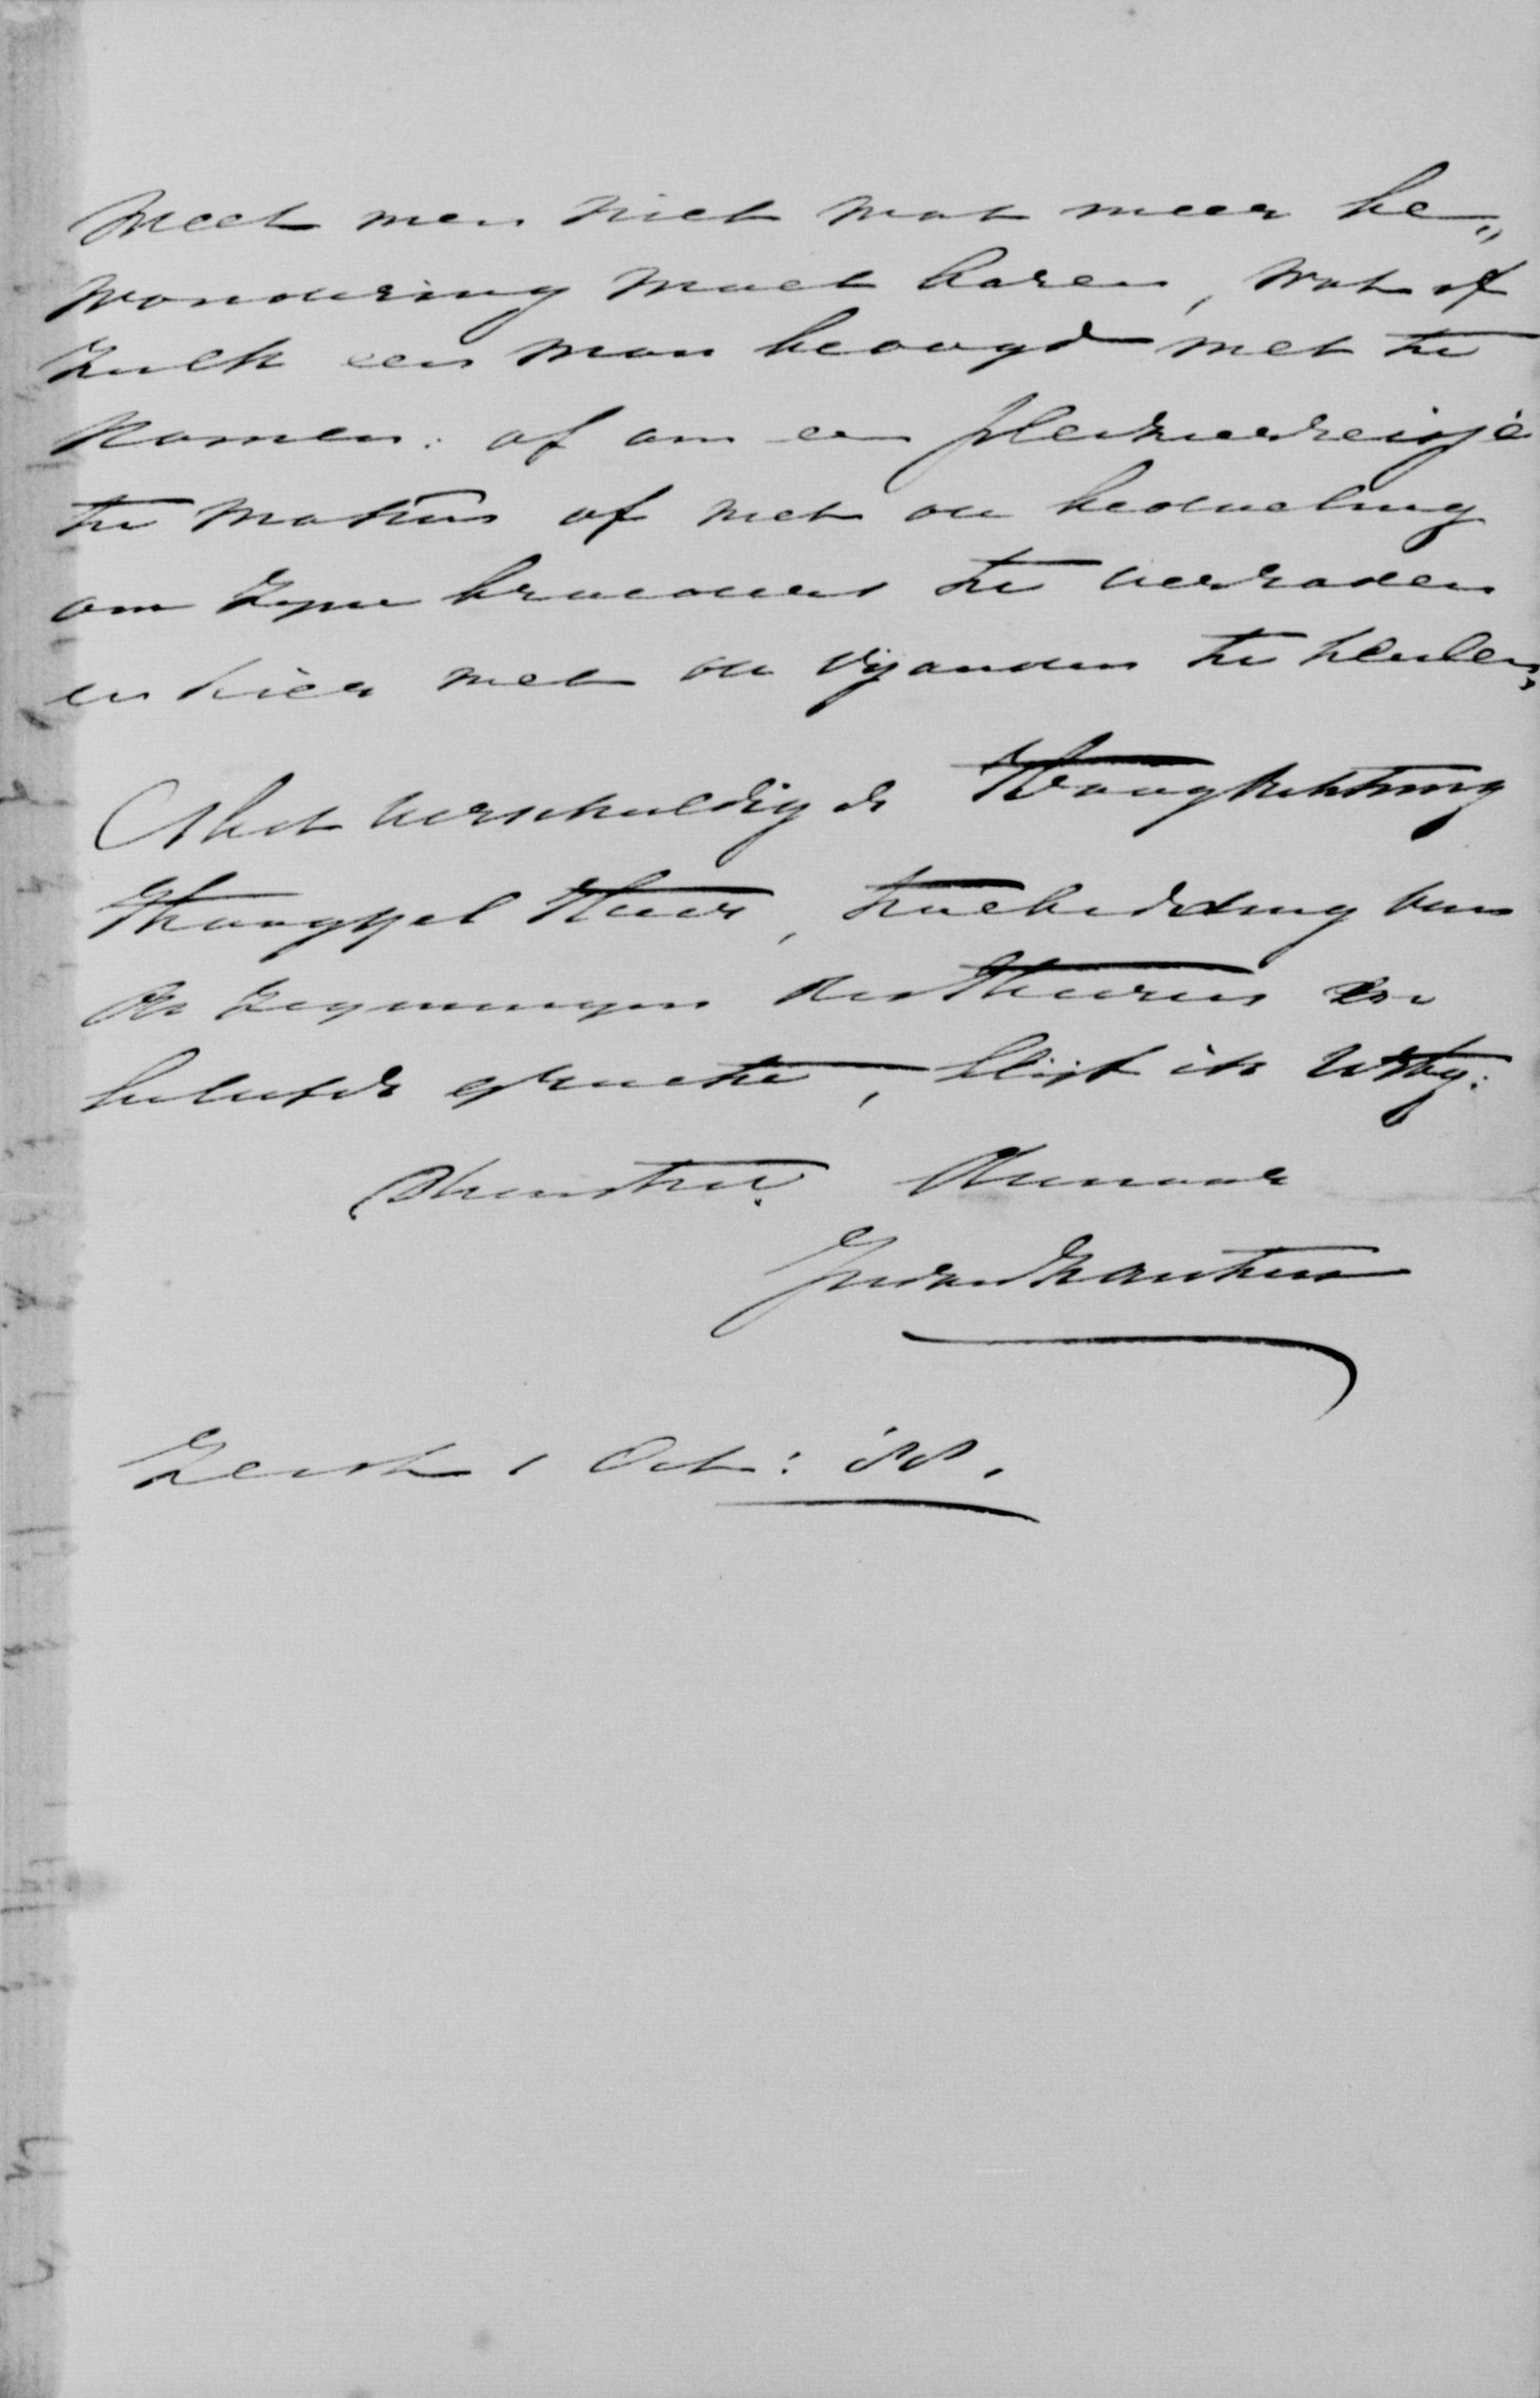 Weet men niet wat meer be„
wondering moet baren, wat of
zulk een man beoogd met te
komen: of om een pleizierreisje
te maken of met de bedoeling
om zyne broeders te verraden
en hier met de vijanden te heulen,
Met verschuldigde Hoogachting
Hooggel Heer, toebidding van
de zegeningen des Heeren en
beleefde groete, blijf ik UHg:
Dienstw. Dienaar
Zeist 1 Oct: '88.